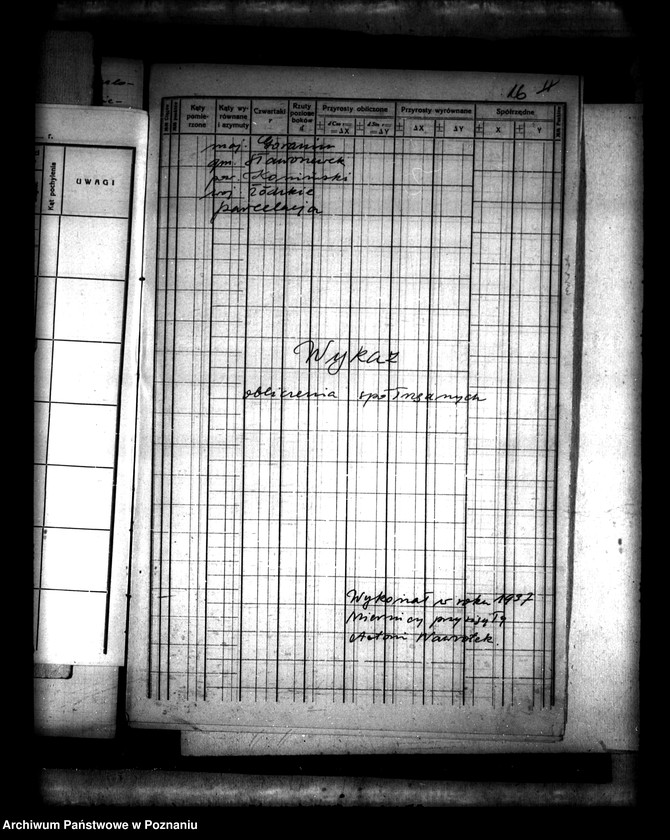 16
Kąty pomierzone
Kąty wyrównane i azymuty
Czwartaki r
Rzuty poziome boków d
Przyrosty obliczone
Przyrosty wyrównane
Spółrzędne
± = ΔX
± = ΔY
± ΔX
± ΔY
± X
± Y
r.
Kąt pochylenia
UWAGI
maj. Goranin
gm.
pow. Koniński
woj. Łódzkie
parcelacja
Wykaz
obliczenia spółrzędnych
Wykonał w roku 1937
Mierniczy przysięgły
Antoni Nawrotek.
Archiwum Państwowe w Poznaniu